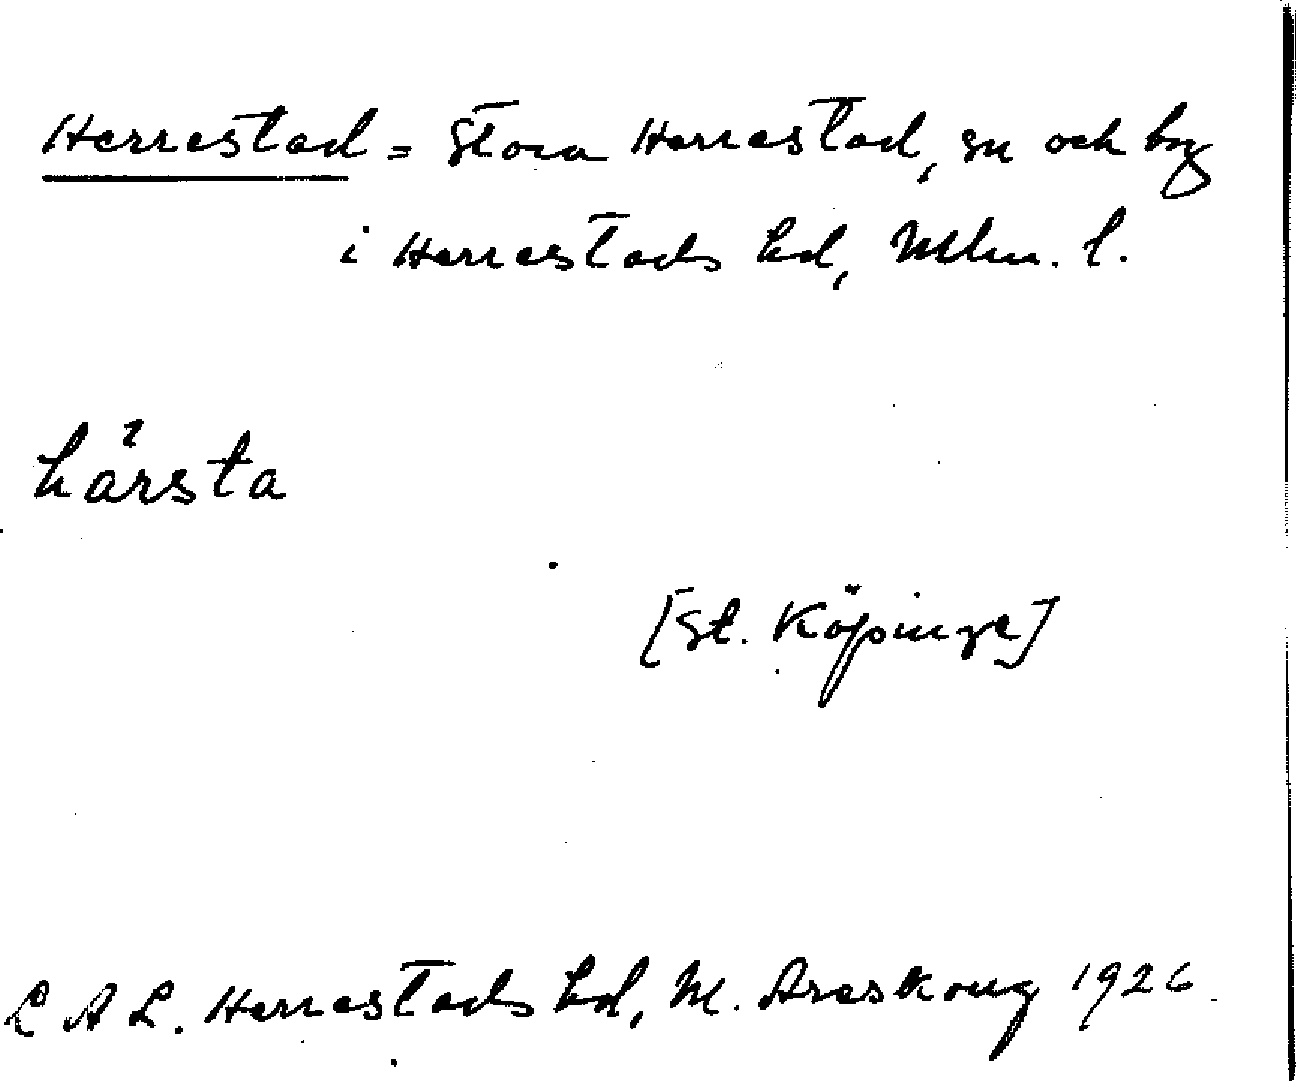 Herrestad = Stora Herrestad, sn och by
i Herrestads hd, Mlm. l.
härsta
[St. Köpinge]
L A L. Herrestads hd, M. Areskoug 1926